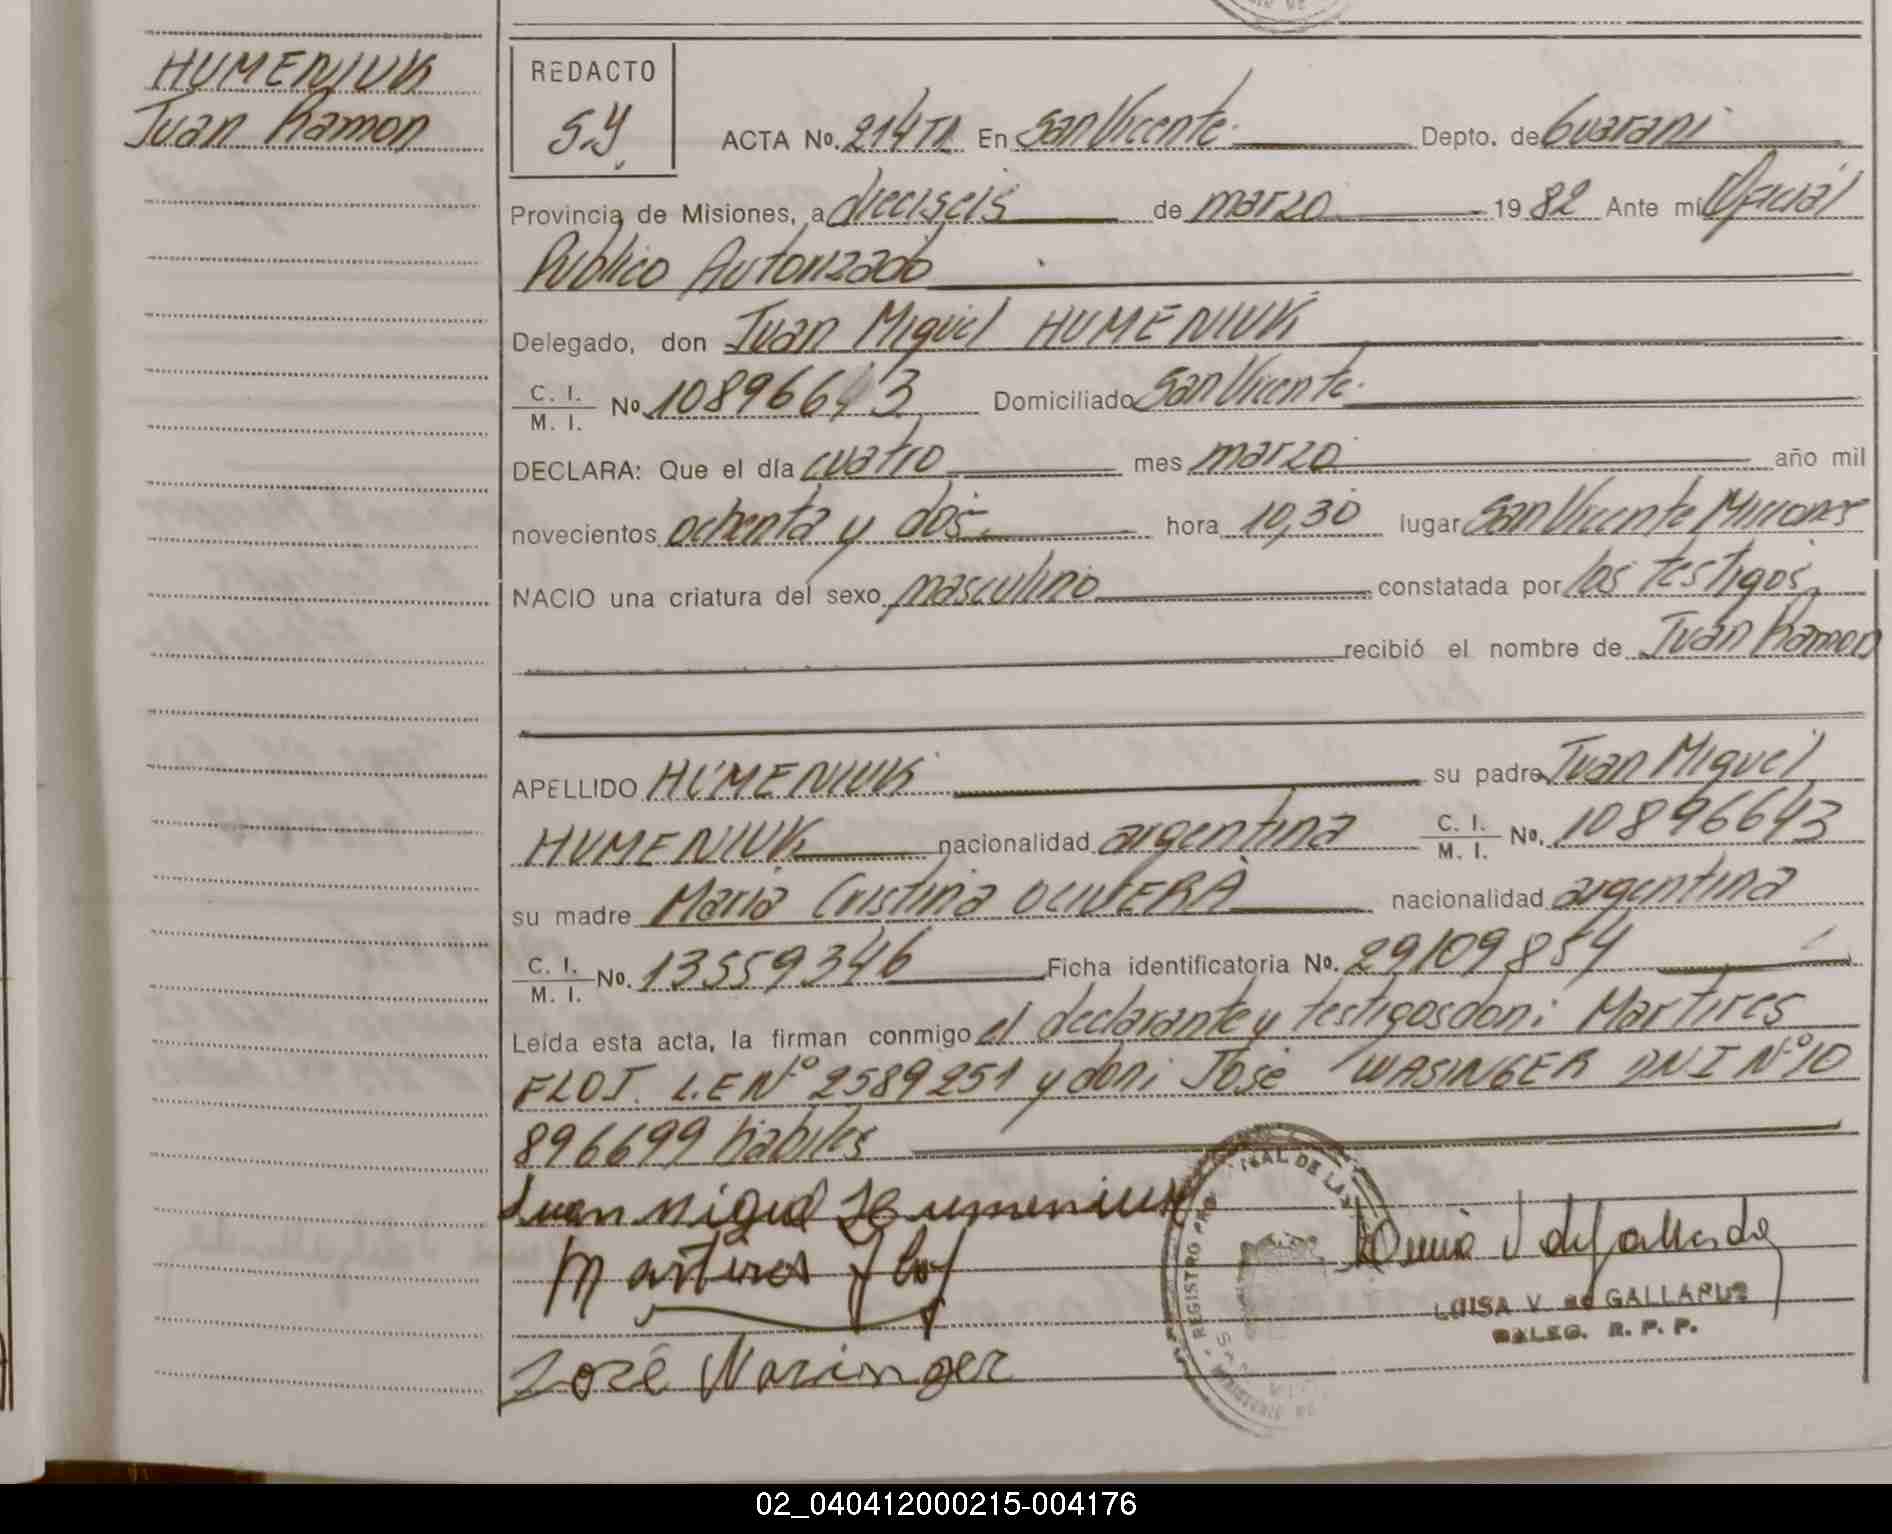 HUMENIUK
Juan Ramon
REDACTO
S.Y.
ACTA No. 214T1 En San Vicente. Depto. de Guarani
Provincia de Misiones, a dieciseis de marzo 1982 Ante mí Oficial
Publico Autorizado
Delegado, don Juan Miguel HUMENIUK
C. I. / M. I. No 10896643 Domiciliado San Vicente.
DECLARA: Que el día cuatro mes marzo año mil
novecientos ochenta y dos hora 10,30 lugar San Vicente Misiones
NACIO una criatura del sexo masculino constatada por los testigos
recibió el nombre de Juan Ramon
APELLIDO HUMENIUK su padre Juan Miguel
HUMENIUK nacionalidad argentina C. I. / M. I. No. 10896643
su madre Maria Cristina OLIVERA nacionalidad argentina
C. I. / M. I. No. 13559346 Ficha identificatoria No. 29109854
Leída esta acta, la firman conmigo el declarante y testigos don: Martires
FLOJ. L.E Nº 2589251 y don: José WASINGER DNI Nº 10
896699 habiles
Juan Miguel Humeniuk
Martires Floj
José Wasinger
REGISTRO PRO
NAL DE LA
LUISA V. de GALLARDO
DALEG. R. P. P.
02_040412000215-004176